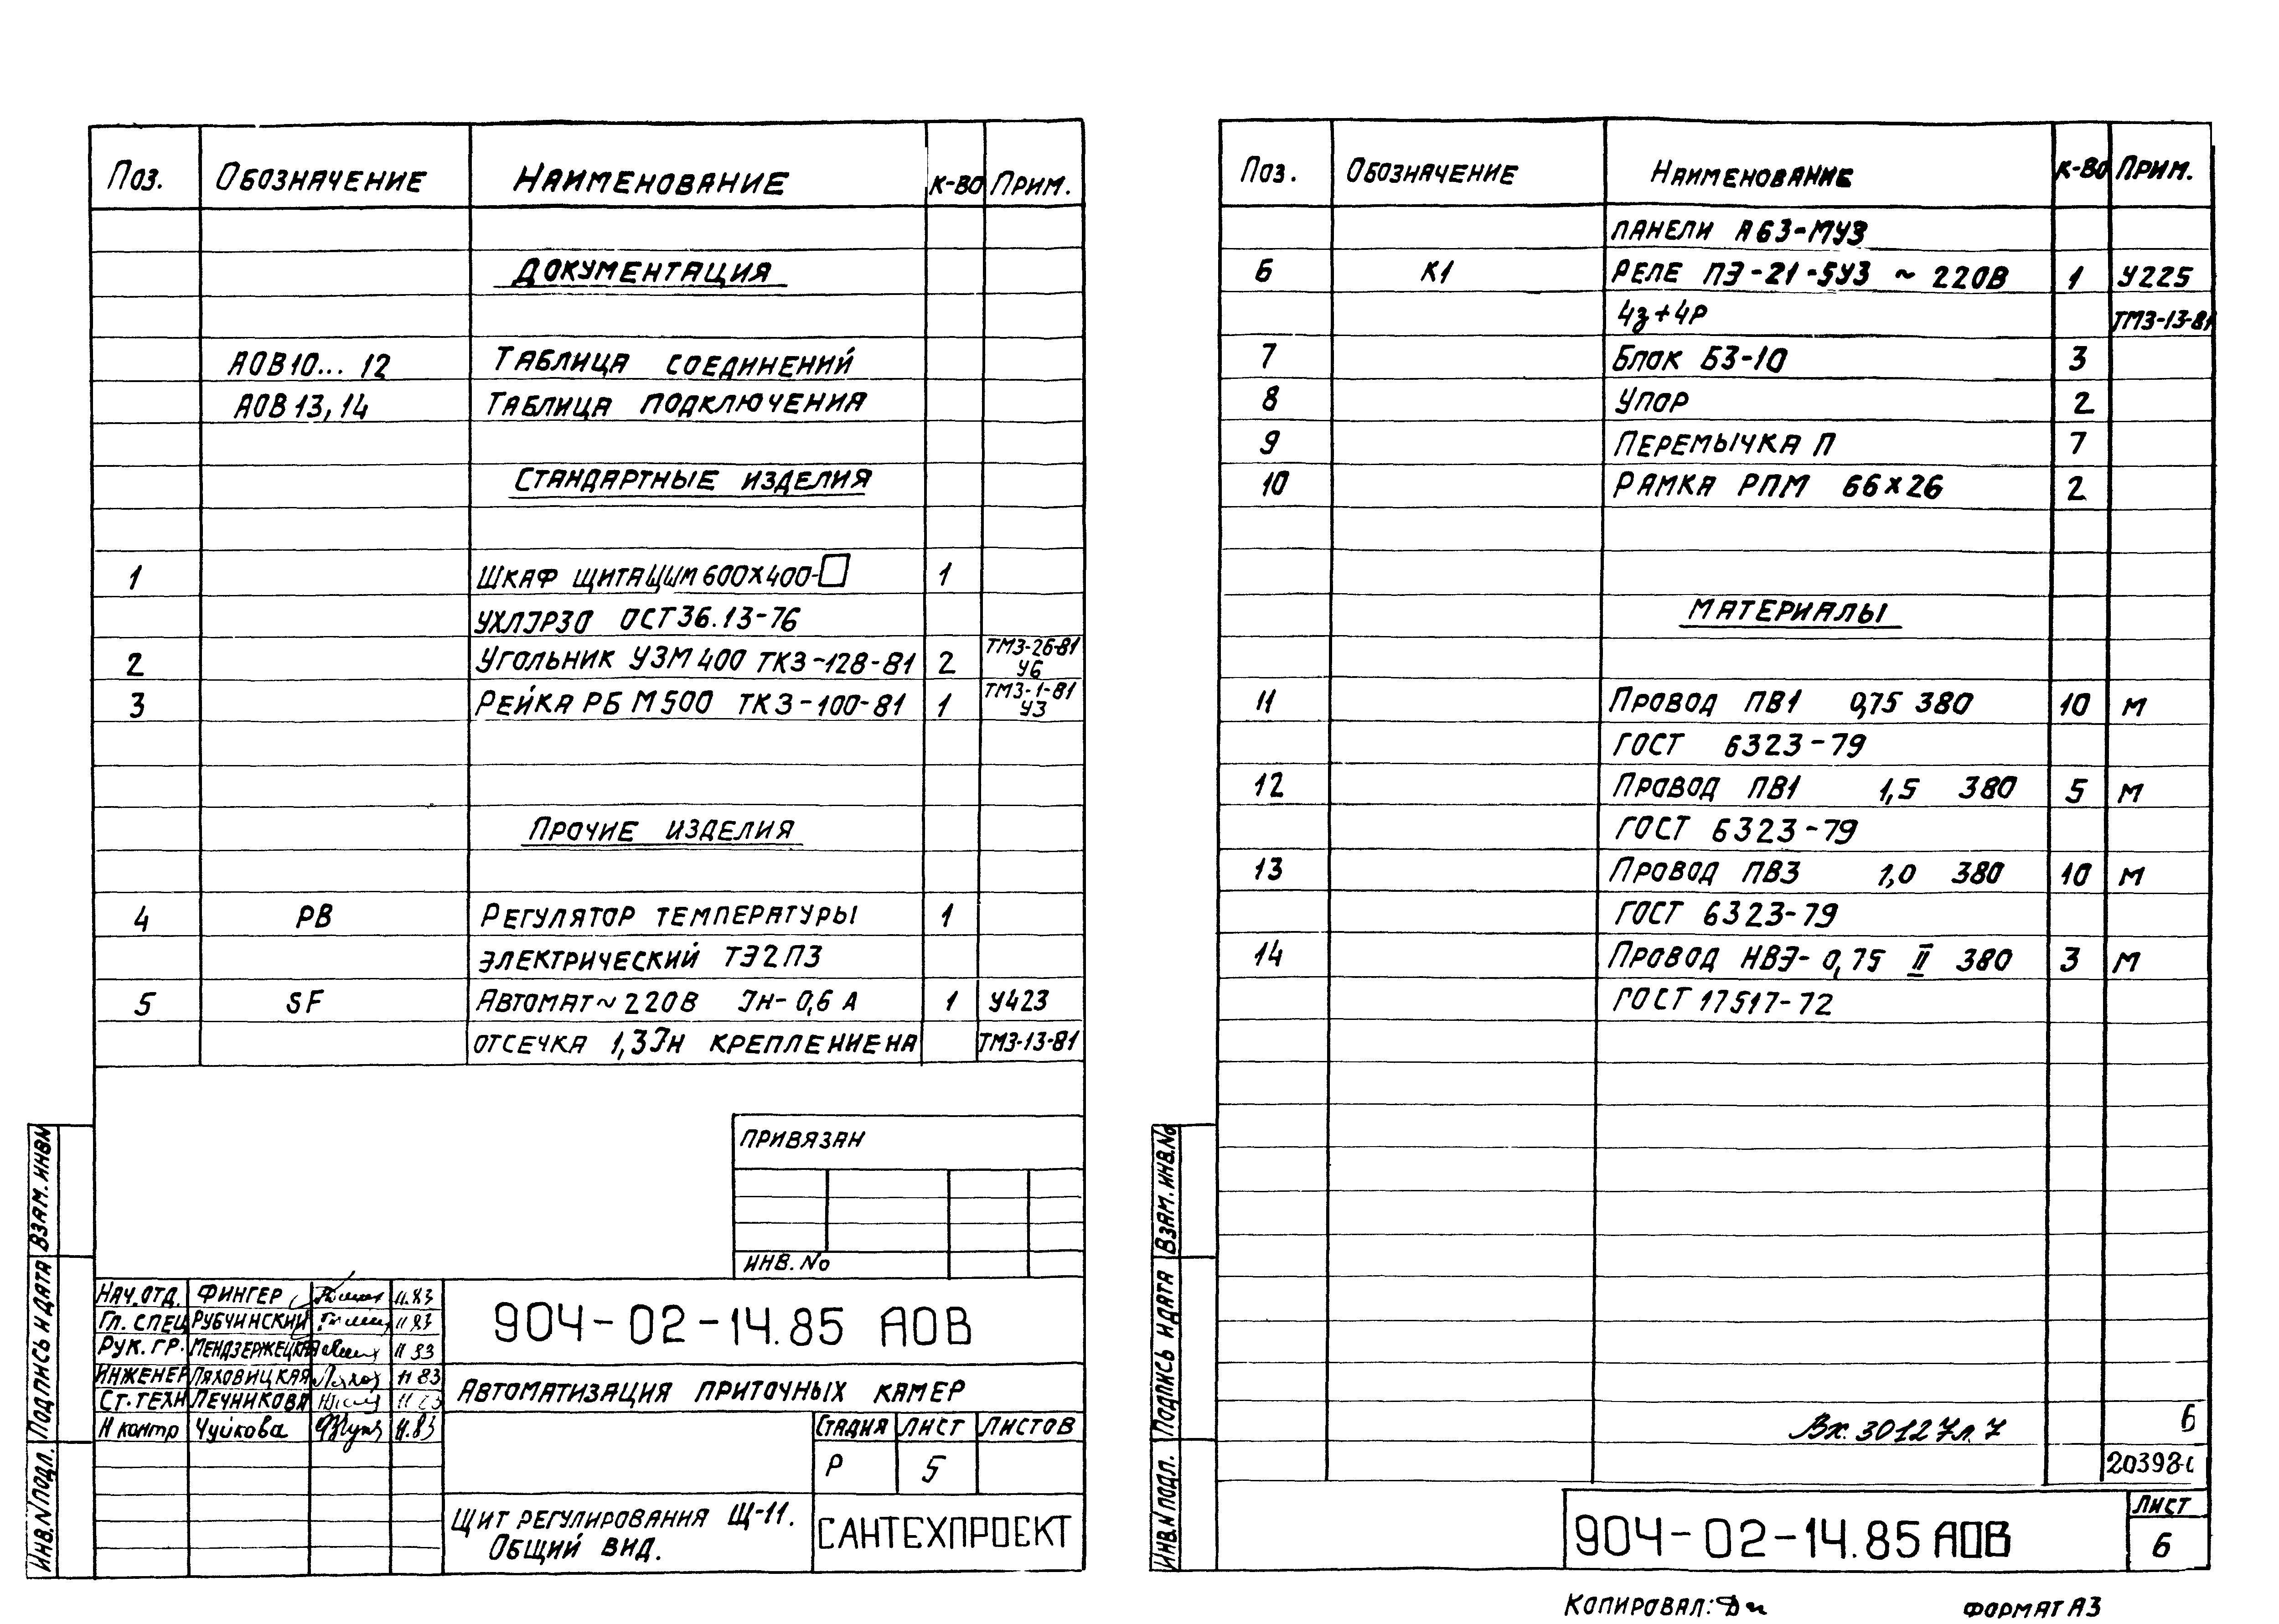 Поз. Обозначение Наименование К-во Прим.
Документация
АОВ10... 12 Таблица соединений
АОВ13,14 Таблица подключения
Стандартные изделия
1 Шкаф щита ЩШМ 600х400-□ 1
УХЛЭРЗО ОСТ36.13-76
2 Угольник УЗМ400 ТКЗ-128-81 2 ТМЗ-26-81 У6
3 Рейка РБМ500 ТКЗ-100-81 1 ТМЗ-1-81 У3
Прочие изделия
4 РВ Регулятор температуры 1
электрический ТЭ2ПЗ
5 SF Автомат ~220В Iн-0,6 А 1 У423
отсечка 1,3Iн крепление на ТМЗ-13-81
Привязан
Инв. №
Нач. отд. Фингер 11.83
Гл. спец Рубчинский 11 83
Рук. гр. Мендзержецкая 11 83
Инженер Ляховицкая 11 83
Ст. техн Печникова
Н контр Чуйкова 11.83
904-02-14.85 АОВ
Автоматизация приточных камер
Стадия Лист Листов
Р 5
Щит регулирования Щ-11.
Общий вид.
САНТЕХПРОЕКТ
Взам. инв №
Подпись и дата
Инв. N подл.
Поз. Обозначение Наименование К-во Прим.
панели А63-МУЗ
6 К1 Реле ПЭ-21-5УЗ ~ 220В 1 У225
4з+4р ТМЗ-13-81
7 Блок БЗ-10 3
8 Упор 2
9 Перемычка П 7
10 Рамка РПМ 66х26 2
Материалы
11 Провод ПВ1 0,75 380 10 м
ГОСТ 6323-79
12 Провод ПВ1 1,5 380 5 м
ГОСТ 6323-79
13 Провод ПВ3 1,0 380 10 м
ГОСТ 6323-79
14 Провод НВЭ-0,75 II 380 3 м
ГОСТ 17517-72
Вх. 30127л.7
6
20398-
904-02-14.85 АОВ
Лист
6
Взам. инв. №
Подпись и дата
Инв. N подл.
Копировал:
Формат А3